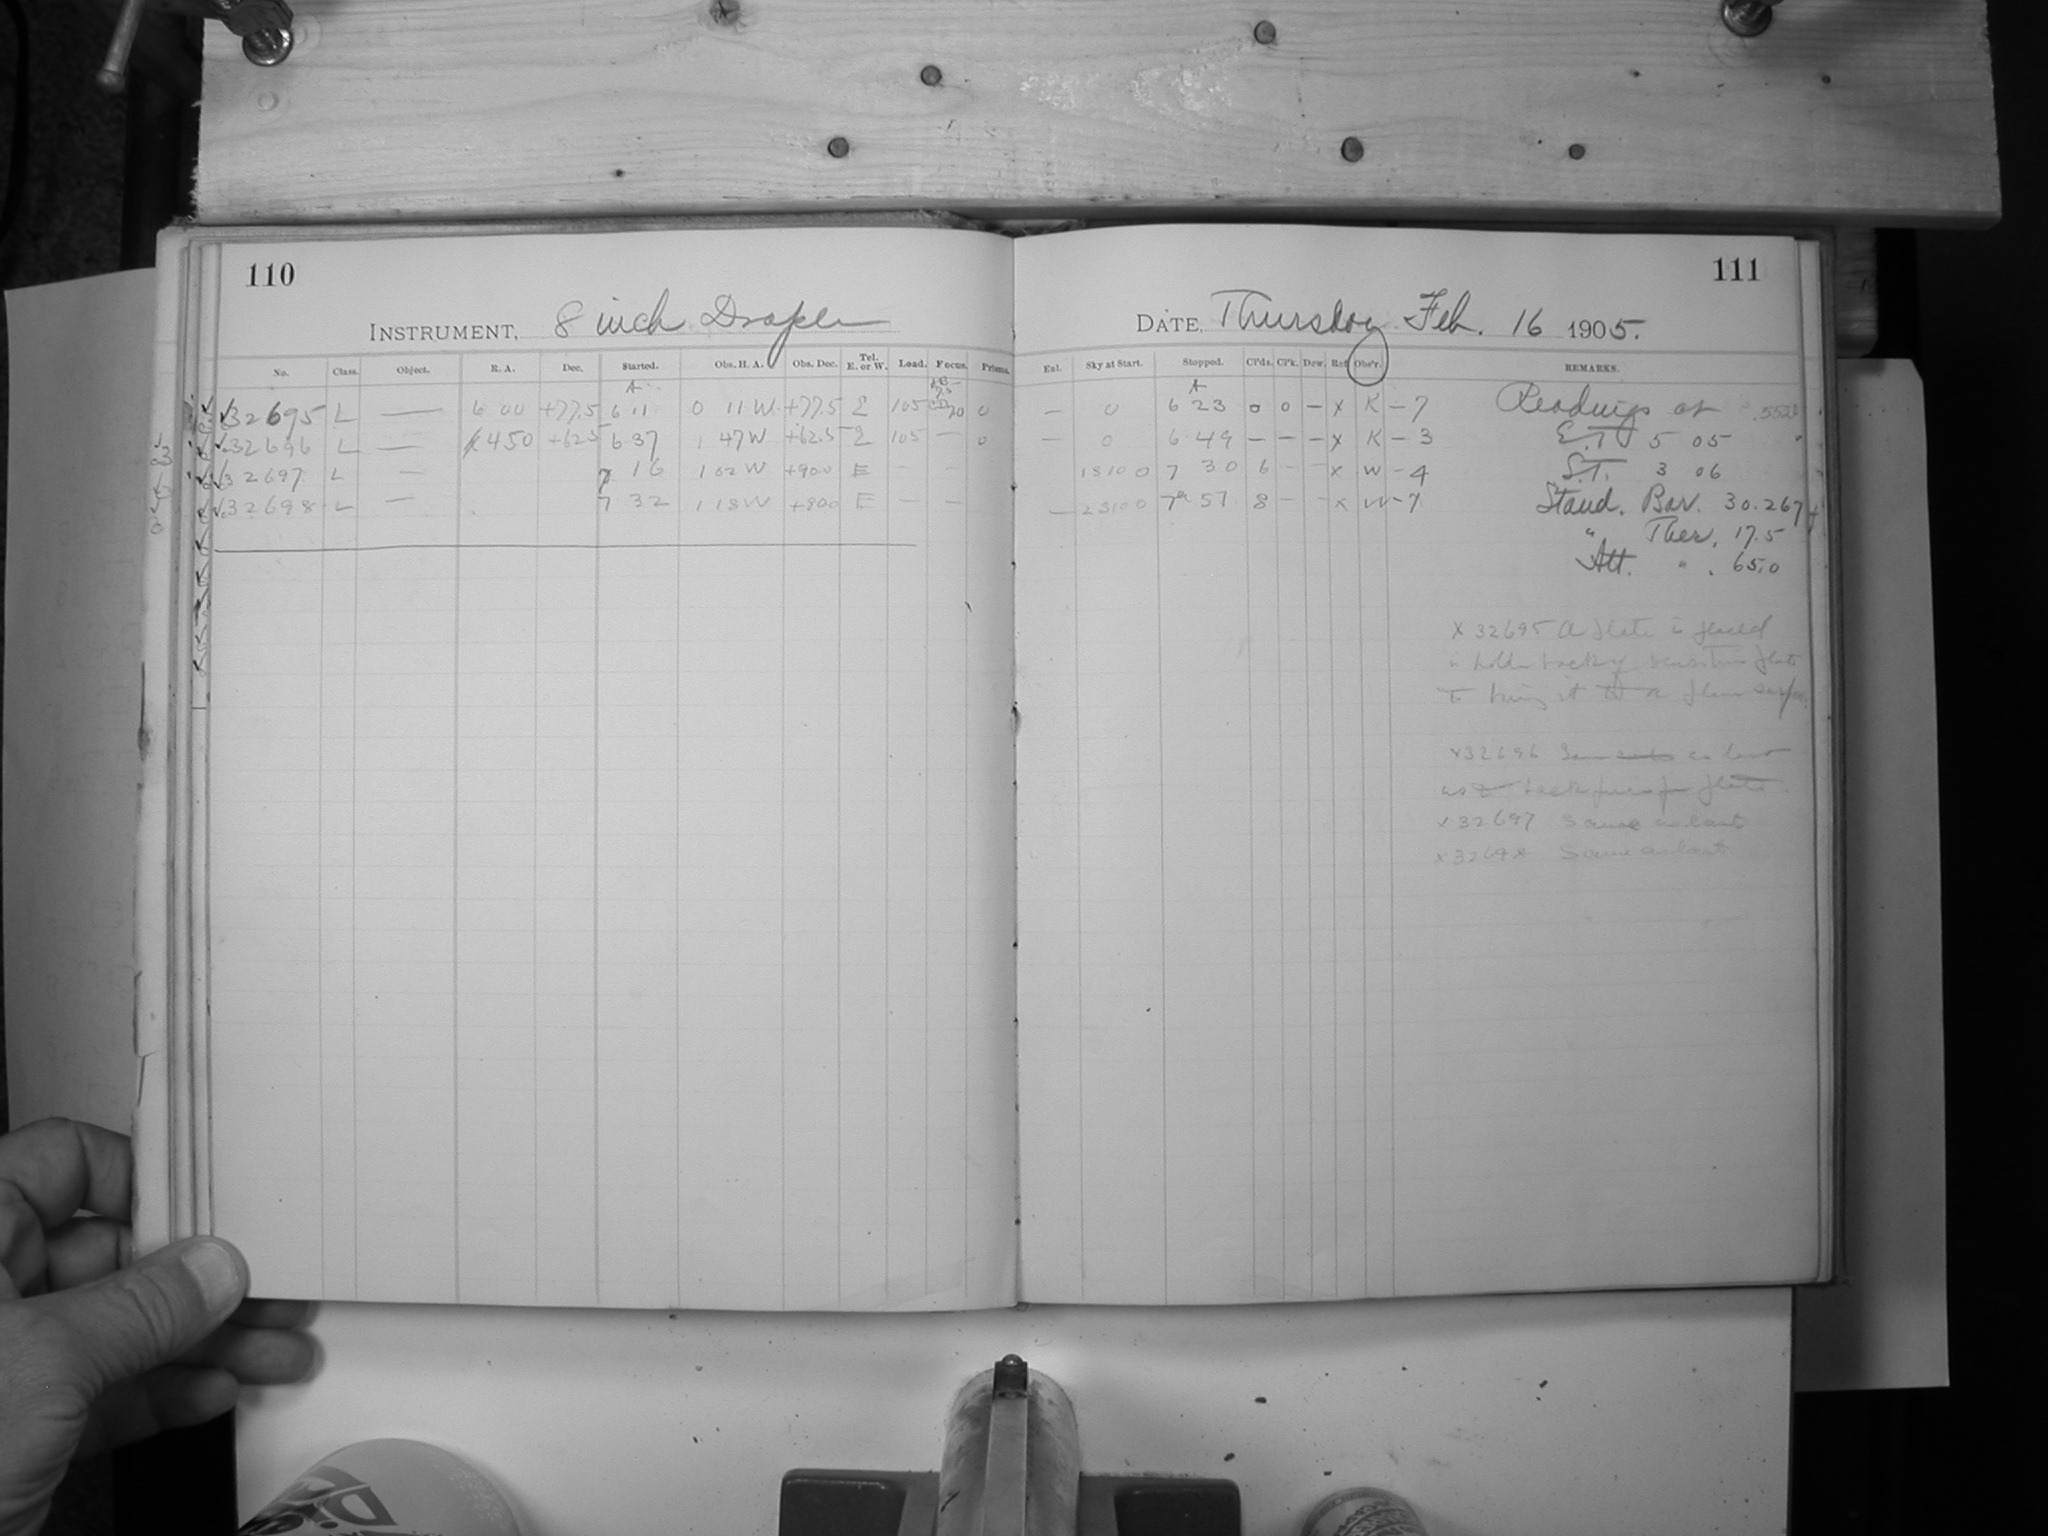 110
INSTRUMENT, 8 inch Draper
No. Class. Object. R. A. Dec. Started. Obs. H. A. Obs. Dec. Tel. E. or W. Load. Focus. Prisms.
32695 L — 6 00 +77.5 6 11 0 11 W +77.5 E 105 20 0
32696 L — 4 50 +62.5 6 37 1 47 W +62.5 E 105 — 0
32697 L — 7 16 1 02 W +90.0 E — —
32698 L — 7 32 1 18 W +90.0 E — —
111
DATE, Thursday Feb. 16 1905.
Enl. Sky at Start. Stopped. Cl'ds. Cl'k. Dew. Ref. Obs'r. REMARKS.
— 0 6 23 0 0 — x K — 7
— 0 6 49 — — — x K — 3
7 30 6 — — x W — 4
— 7 51 8 — — x W — 7
Readings at
E.T. 5 05
S.T. 3 06
Stand. Bar. 30.267
" Ther. 17.5
Att. " . 65.0
x 32695 A plate is placed
in holder back of sensitive plate
to bring it to a plane surface.
x 32696 as last
x 32697 Same as last
x 32698 Same as last